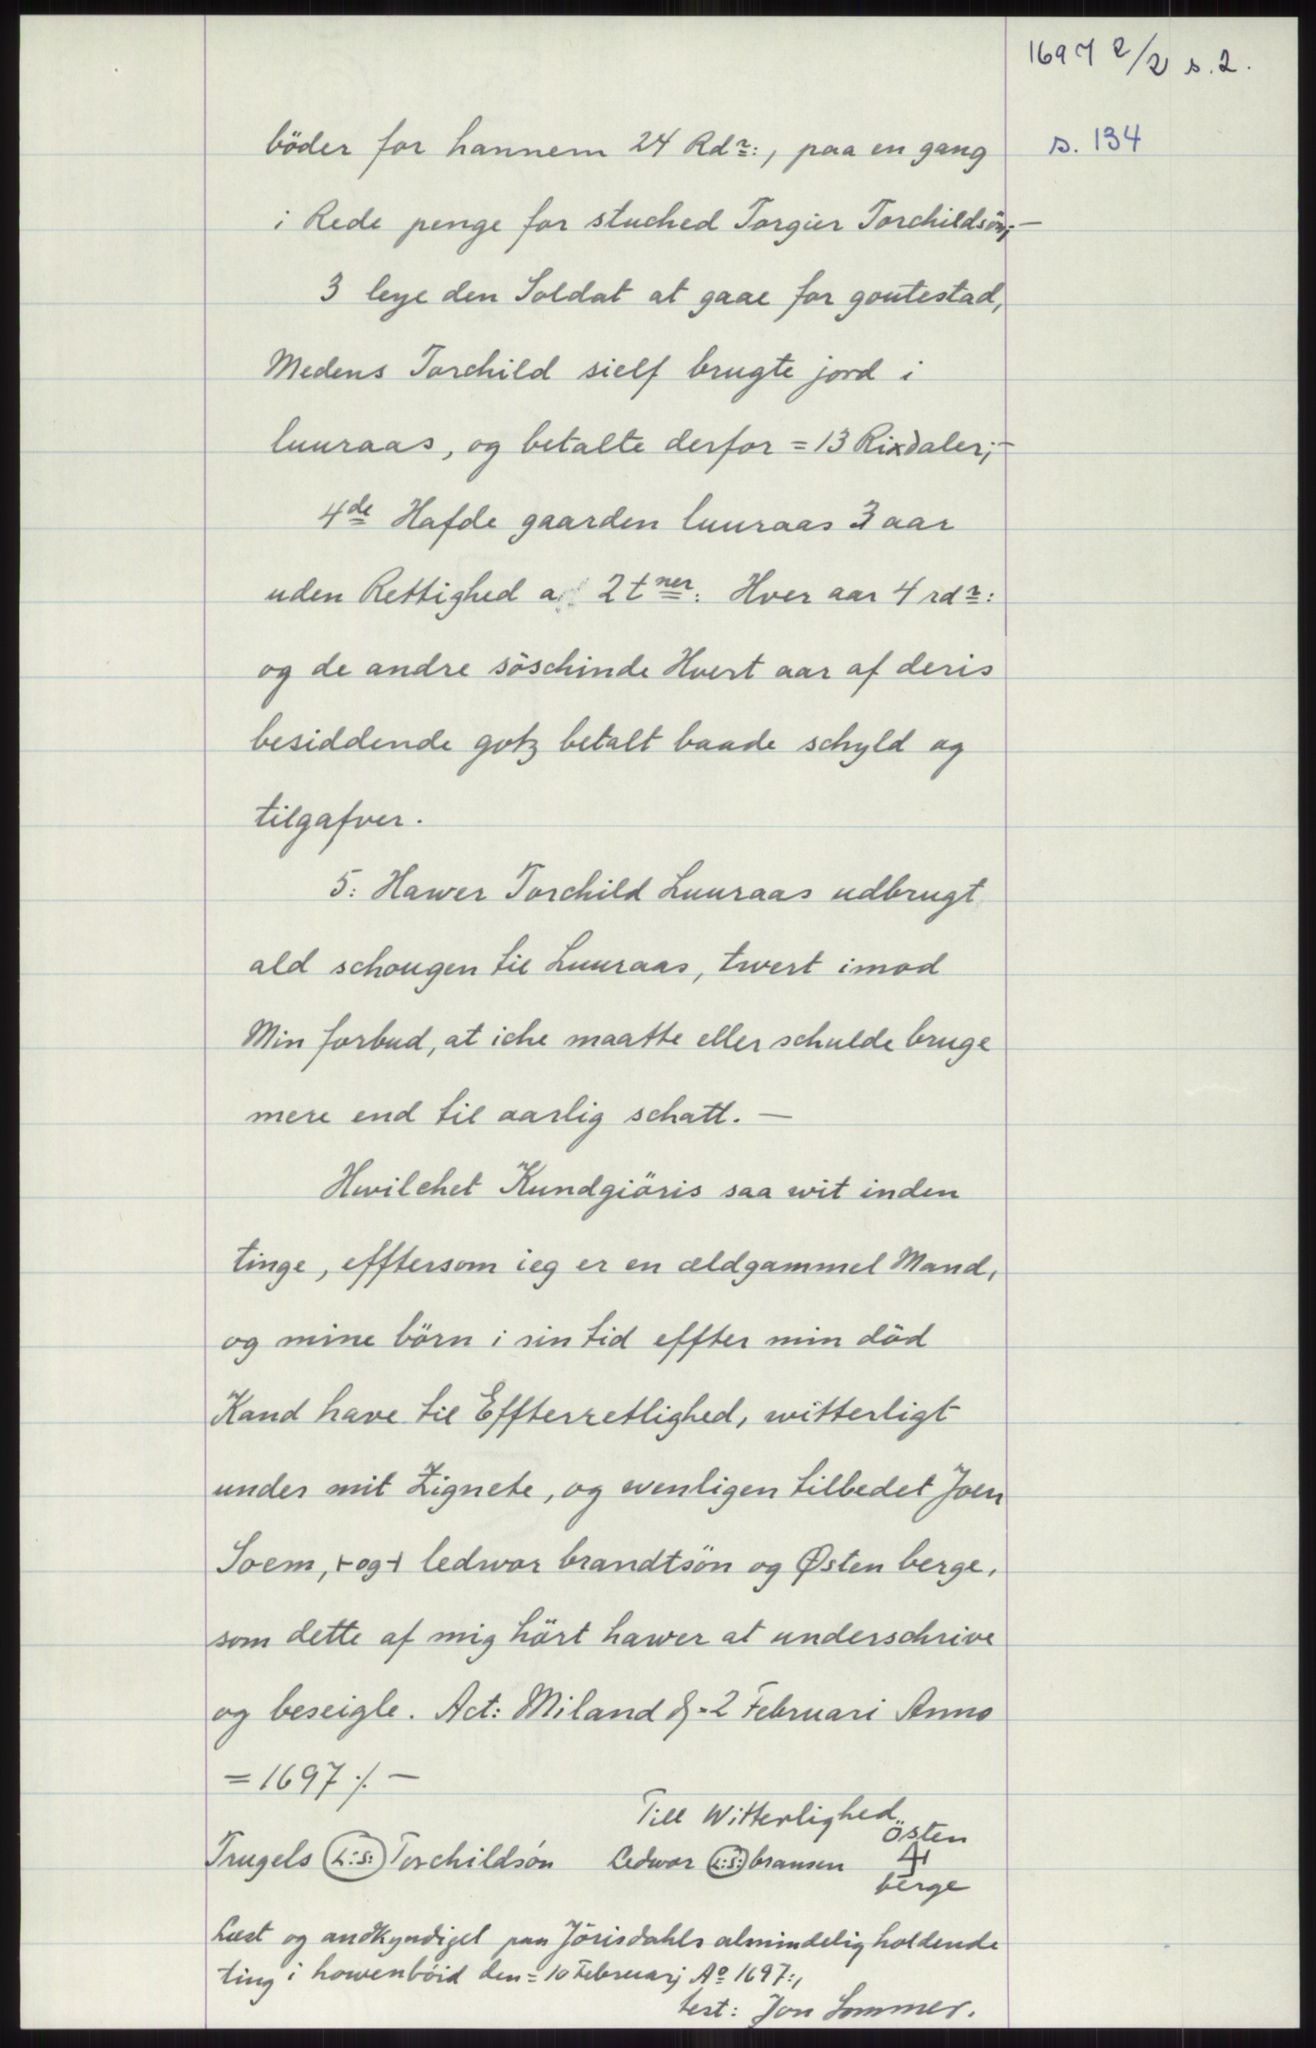 1697 2/2 s. 2.
böder for hannem 24 Rdr:, paa en gang
s. 134
i Rede penge for stuched Torgier Torchildsön;-
3 leye den Soldat at gaae for goutestad,
Medens Torchild sielf brugte jord i
luuraas, og betalte derfor = 13 Rixdaler;-
4de Hafde gaarden luuraas 3 aar
uden Rettighed a 2 tner: Hver aar 4 rdr:
og de andre söschinde Hvert aar af deris
besiddende gotz betalt baade schyld og
tilgafver.
5: Hawer Torchild Luuraas udbrugt
ald schougen til Luuraas, twert imod
Min forbud, at iche maatte eller schulde bruge
mere end til aarlig schatt. —
Hwilchet Kundgiöris saa wit inden
tinge, efftersom ieg er en ældgammel Mand,
og mine börn i sin tid effter min död
Kand have til Effterretlighed, witterligt
under mit Zignete, og wenligen tilbedet Joen
Soem, +og+ ledwor brandtsön og Østen berge,
som dette af mig hört hawer at underschrive
og beseigle. Act: Miland d. 2 Februari Anno
= 1697 ·/. —
Till Witterlighed
Trugels (L:S:) Torchildsön Ledwor (L:S:) bransen Östen
berge
Læst og andkyndiget paa Jörisdahls almindelig holdende
ting i howenböid den = 10 Februarj Ao 1697:,
test: Jon Sommer.